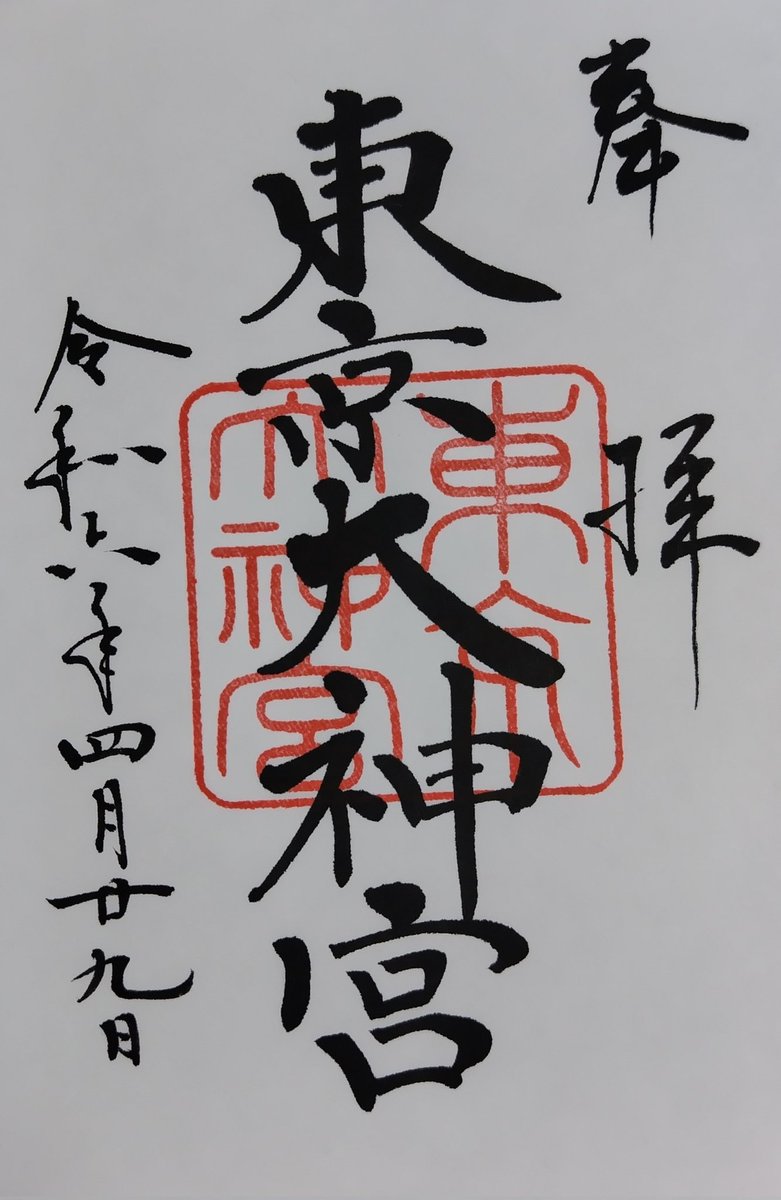 奉拝
東京大神宮
東京
大神宮
令和六年四月廿九日